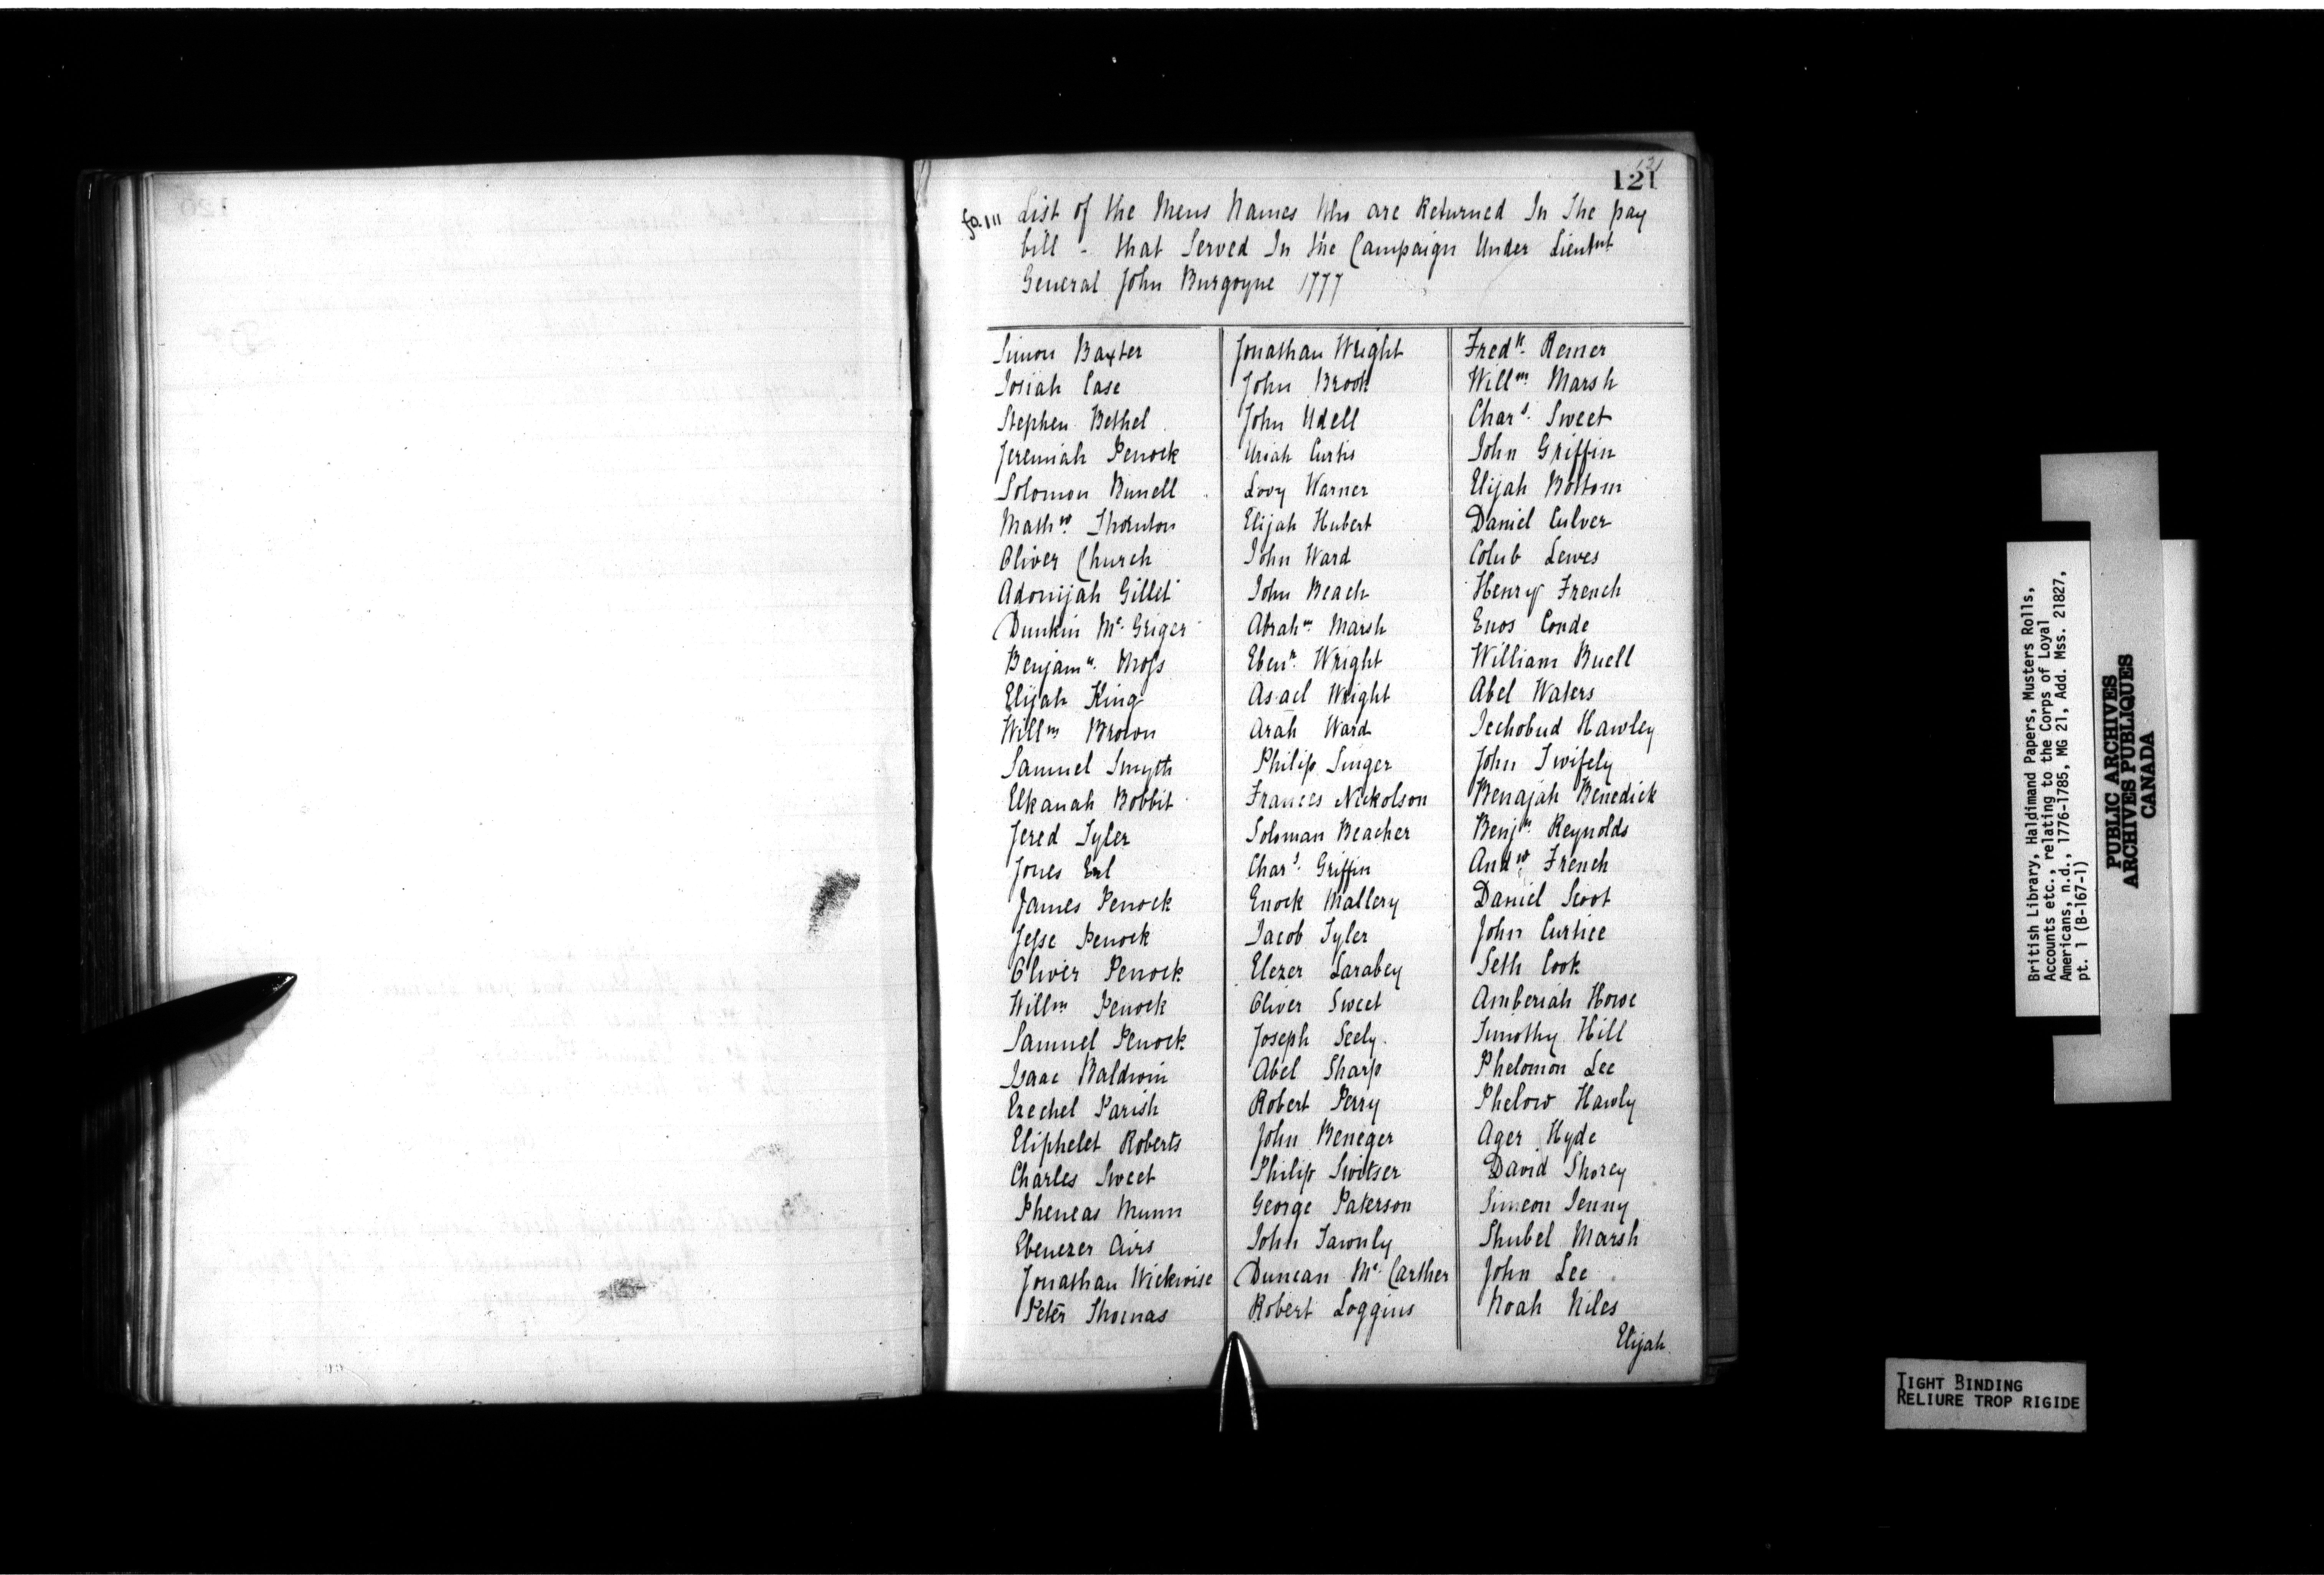 121
121
fo. 111
List of the Mens Names Who are Returned In The pay
bill - that Served In the Campaign Under Lieutnt
General John Burgoyne 1777
Simon Baxter
Josiah Case
Stephen Bethel
Jeremiah Penock
Solomon Bunell
Mathw. Thornton
Oliver Church
Adonijah Gillet
Dunkin Mc. Griger
Benjamn. Moss
Elijah King
Willm Brown
Samuel Smyth
Elkanah Bobbit
Jered Tyler
Jones Erl
James Penock
Jesse Penock
Oliver Penock
Willm Penock
Samuel Penock
Isaac Baldwin
Ezechel Parish
Eliphelet Roberts
Charles Sweet
Pheneas Munn
Ebenezer Airs
Jonathan Wickwise
Peter Thomas
Jonathan Wright
John Brook
John Udell
Uriah Curtis
Lovy Warner
Elijah Hubert
John Ward
John Beach
Abrahm. Marsh
Ebenr. Wright
Asael Wright
Arah Ward
Philip Singer
Frances Nickolson
Soloman Beacher
Chars. Griffin
Enock Mallery
Jacob Tyler
Elezer Larabey
Oliver Sweet
Joseph Seely
Abel Sharp
Robert Perry
John Beneger
Philip Switser
George Paterson
John Tawnly
Duncan Mc. Carther
Robert Loggins
Fredk. Remer
Willm Marsh
Chars. Sweet
John Griffin
Elijah Bottom
Daniel Culver
Colub Lewes
Henry French
Enos Conde
William Buell
Abel Waters
Jechobud Hawley
John Twifely
Benajah Benedick
Benjn. Reynolds
Andw. French
Daniel Scot
John Curtice
Seth Cook
Amberiah Howe
Timothy Hill
Phelomon Lee
Phelow Hawly
Ager Hyde
David Shorey
Simeon Jenny
Shubel Marsh
John Lee
Noah Niles
Elijah
British Library, Haldimand Papers, Musters Rolls,
Accounts etc., relating to the Corps of Loyal
Americans, n.d., 1776-1785, MG 21, Add. Mss. 21827,
pt. 1 (B-167-1)
PUBLIC ARCHIVES
ARCHIVES PUBLIQUES
CANADA
TIGHT BINDING
RELIURE TROP RIGIDE